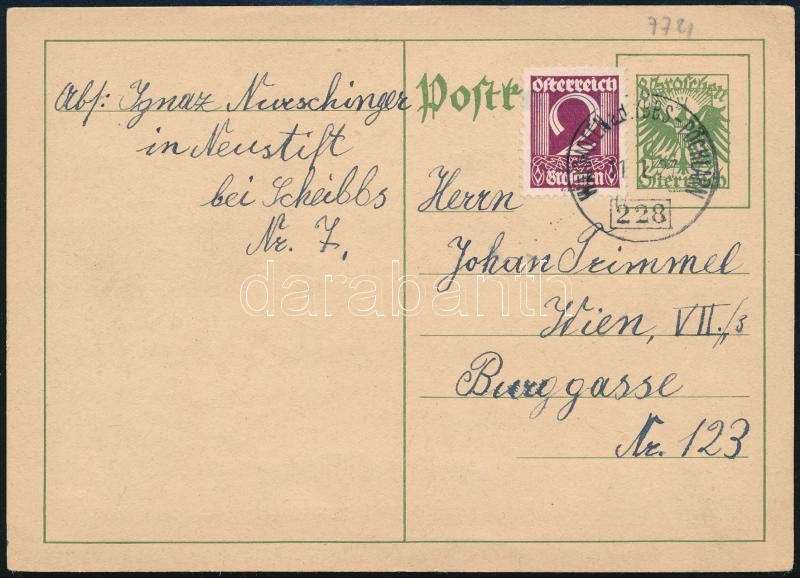 7721
Abs: Ignaz Nurschinger
in Neustift
bei Scheibbs
Nr. 7,
Postk
Österreich
2
Groschen
8 Groschen
Österreich
228
Herrn
Johan Trimmel
Wien, VII./3
Burggasse
Nr. 123
darabanth